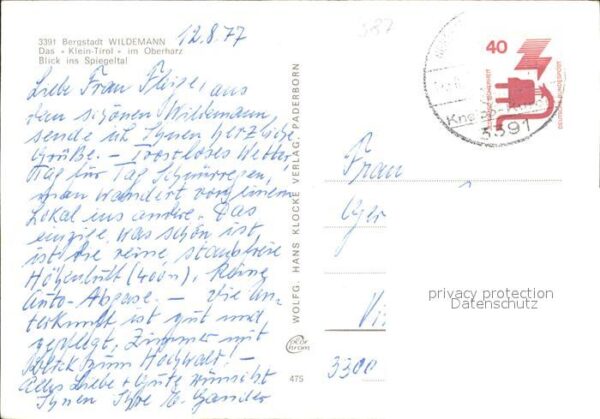 3391 Bergstadt WILDEMANN
Das « Klein-Tirol » im Oberharz
Blick ins Spiegeltal
12.8.77
587
Liebe Frau Flüge, aus
dem schönen Wildemann,
sende ich Ihnen herzliche
Grüße. – Trostloses Wetter
Tag für Tag Schnürregen,
man wandert von einem
Lokal ins andre. Das
einzige, was schön ist
ist die reine, staubfreie
Höhenluft (400m), keine
Auto-Abgase. – Die Un-
terkunft ist gut und
gepflegt, Zimmer mit
Blick zum Hochwald! –
Alles Liebe + Gute wünscht
Ihnen Ihre E. Gander
WOLFG. HANS KLOCKE VERLAG, PADERBORN
475
40
DEUTSCHE BUNDESPOST
3391
Frau
3300
privacy protection
Datenschutz